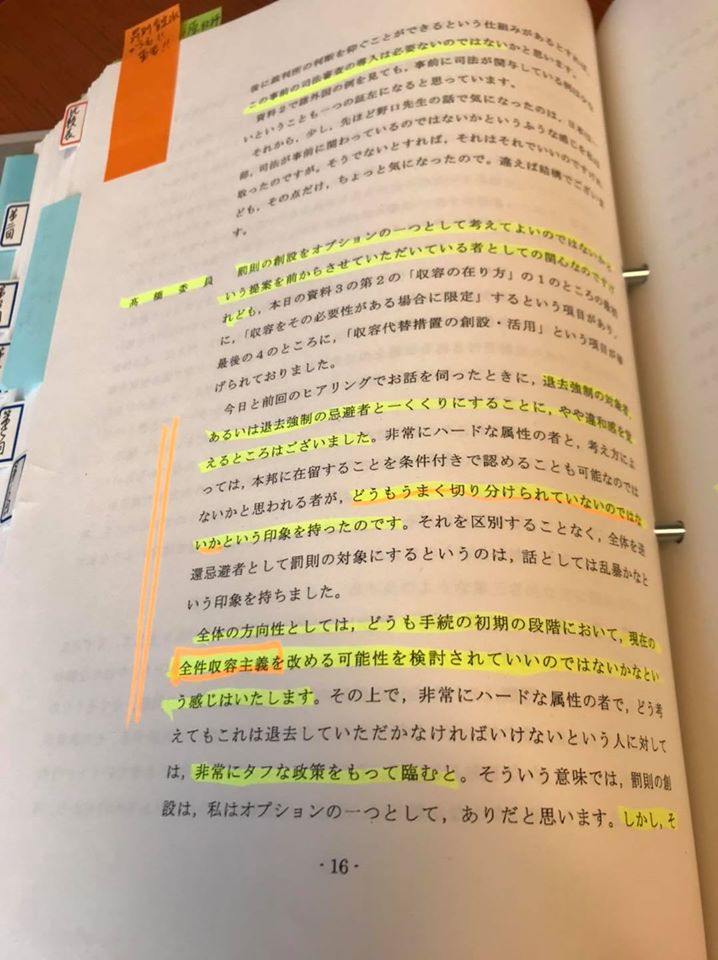 罰則創設
重要!!
比較表
第二回
後に裁判所の判断を仰ぐことができるという仕組みがあるとすれば,
この事前の司法審査の導入は必要ないのではないかと思います。
資料2で諸外国の例を見ても,事前に司法が関与している例は少な
いということも一つの証左になると思っています。
それから,少し,先ほど野口先生の話で気になったのは,日本は一
部,司法が事前に関わっているのではないかというふうな感じを私は
取ったのですが。そうでないとすれば,それはそれでいいのですけれ
ども,その点だけ,ちょっと気になったので。違えば結構でございま
す。
髙橋委員 罰則の創設をオプションの一つとして考えてよいのではないかと
いう提案を前からさせていただいている者としての関心なのですけ
れども,本日の資料3の第2の「収容の在り方」の1のところの最初
に,「収容をその必要性がある場合に限定」するという項目があり,
最後の4のところに,「収容代替措置の創設・活用」という項目が挙
げられておりました。
今日と前回のヒアリングでお話を伺ったときに,退去強制の対象者,
あるいは退去強制の忌避者と一くくりにすることに,やや違和感を覚
えるところはございました。非常にハードな属性の者と,考え方によ
っては,本邦に在留することを条件付きで認めることも可能なのでは
ないかと思われる者が,どうもうまく切り分けられていないのではな
いかという印象を持ったのです。それを区別することなく,全体を送
還忌避者として罰則の対象にするというのは,話としては乱暴かなと
いう印象を持ちました。
全体の方向性としては,どうも手続の初期の段階において,現在の
全件収容主義を改める可能性を検討されていいのではないかなとい
う感じはいたします。その上で,非常にハードな属性の者で,どう考
えてもこれは退去していただかなければいけないという人に対して
は,非常にタフな政策をもって臨むと。そういう意味では,罰則の創
設は,私はオプションの一つとして,ありだと思います。しかし,そ
-16-